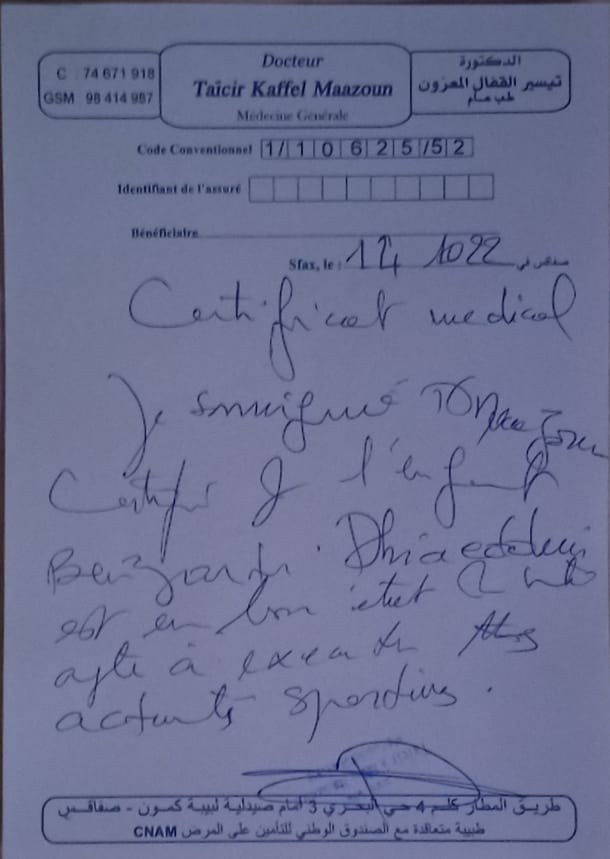 C : 74 671 918
GSM : 98 414 987
Docteur
Taïcir Kaffel Maazoun
Médecine Générale
الدكتورة
تيسير القفال المعزون
طب عام
Code Conventionnel 1/10625/52
Identifiant de l'assuré
Bénéficiaire
Sfax, le : 14 1022 صفاقس في
Certificat medical
Je soussigné Dr Maazoun
Certifie q l'enfant
Benzarti Dhiaeddine
est en bon etat
apte à executer
activités sportives.
طريق المطار كلم 4 حي البحري 3 أمام صيدلية لبيبة كمون - صفاقس
طبيبة متعاقدة مع الصندوق الوطني للتأمين على المرض CNAM